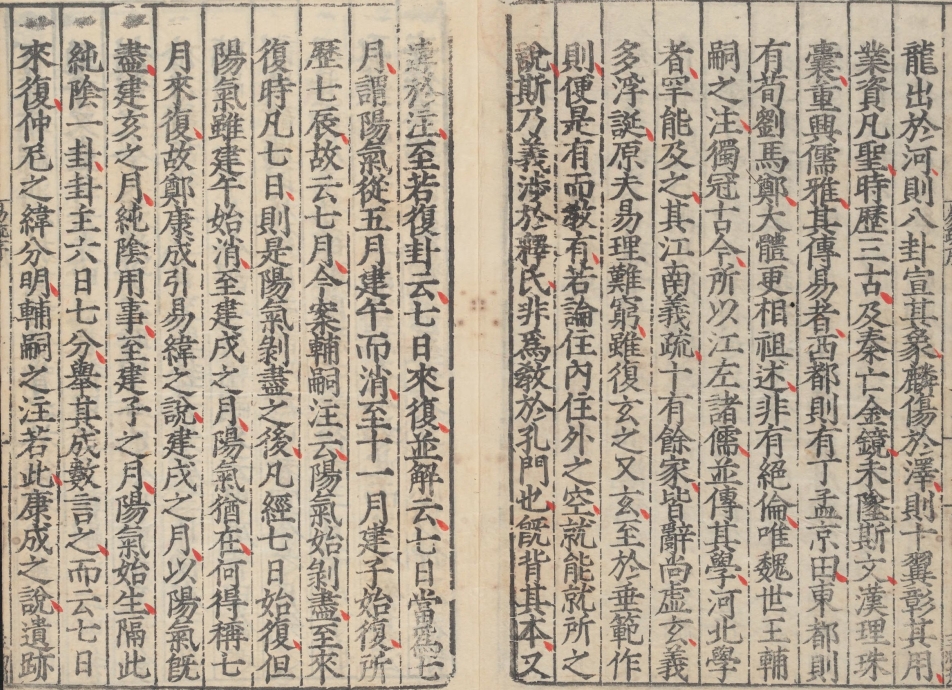 龍出於河則八卦宣其象麟傷於澤則十翼彰其用
業資凡聖時歷三古及秦亡金鏡未墜斯文漢理珠
囊重興儒雅其傳易者西都則有丁孟京田東都則
有荀劉馬鄭大體更相祖述非有絕倫唯魏世王輔
嗣之注獨冠古今所以江左諸儒並傳其學河北學
者罕能及之其江南義疏十有餘家皆辭尚虛玄義
多浮誕原夫易理難窮雖復玄之又玄至於垂範作
則便是有而教有若論住內住外之空就能就所之
說斯乃義涉於釋氏非為教於孔門也既背其本又
違於注至若復卦云七日來復並解云七日當為七
月謂陽氣從五月建午而消至十一月建子始復所
歷七辰故云七月今案輔嗣注云陽氣始剝盡至來
復時凡七日則是陽氣剝盡之後凡經七日始復但
陽氣雖建午始消至建戌之月陽氣猶在何得稱七
月來復故鄭康成引易緯之說建戌之月以陽氣旣
盡建亥之月純陰用事至建子之月陽氣始生隔此
純陰一卦卦主六日七分舉其成數言之而云七日
來復仲尼之緯分明輔嗣之注若此康成之說遺跡